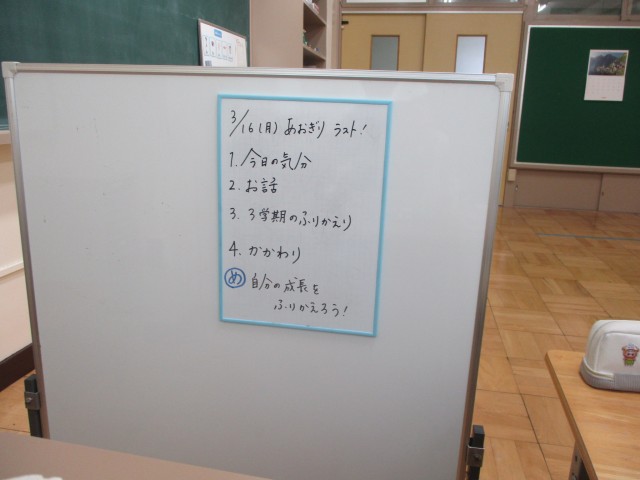 3/16(月) あおぎり ラスト!
1. 今日の気分
2. お話
3. 3学期のふりかえり
4. かかわり
め 自分の成長を
ふりかえろう!